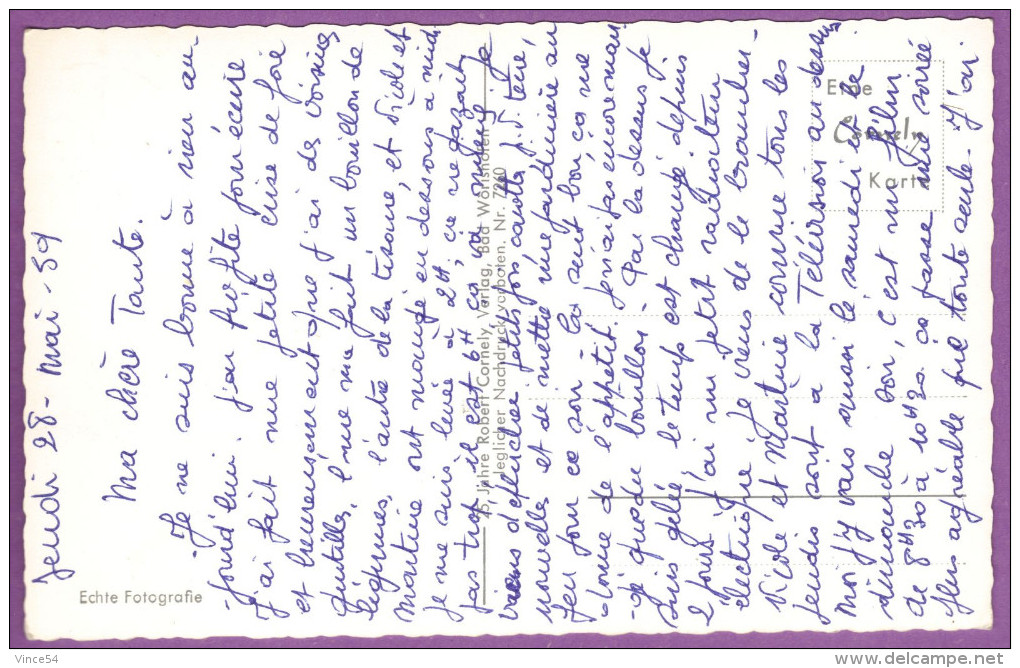 Jeudi 28 - Mai - 59
Ma chère Tante.
- Je ne suis bonne à rien au-
-jourd'hui j'en profite pour écrire
J'ai fait une petite crise de foie
et heureusement que j'ai des voisines
gentilles, l'une me fait un bouillon de
légumes, l'autre de la tisane, et Nicole et
Martine ont mangé en dessous à midi
je me suis levée à 2H, ce ne fazait
pas trop il est 6H ça va mieux je
viens d'éplucher petits pois carotte p.d. terre,
nouvelles et de mettre une jardinière au
feu pour ce soir ça sent bon ça me
donne de l'appétit. je n'ai pas encore man-
-gé que du bouillon - Par la dessus je
suis gelée le temps est changé depuis
2 jours j'ai un petit radiateur
électrique je viens de le brancher -
Nicole et Martine comme tous les
jeudis sont à la Télévision au dessus
Moi j'y vais aussi le samedi et le
dimanche soir, c'est un film
de 8H30 à 10H30. ça passe une soirée
plus agréable que toute seule - J'ai
Echte Fotografie
25 Jahre Robert Cornely Verlag, Bad Wörishofen
Jeglicher Nachdruck verboten. Nr. 7260
Eine
Cornely
Karte
Vince54
http://www.delcampe.net